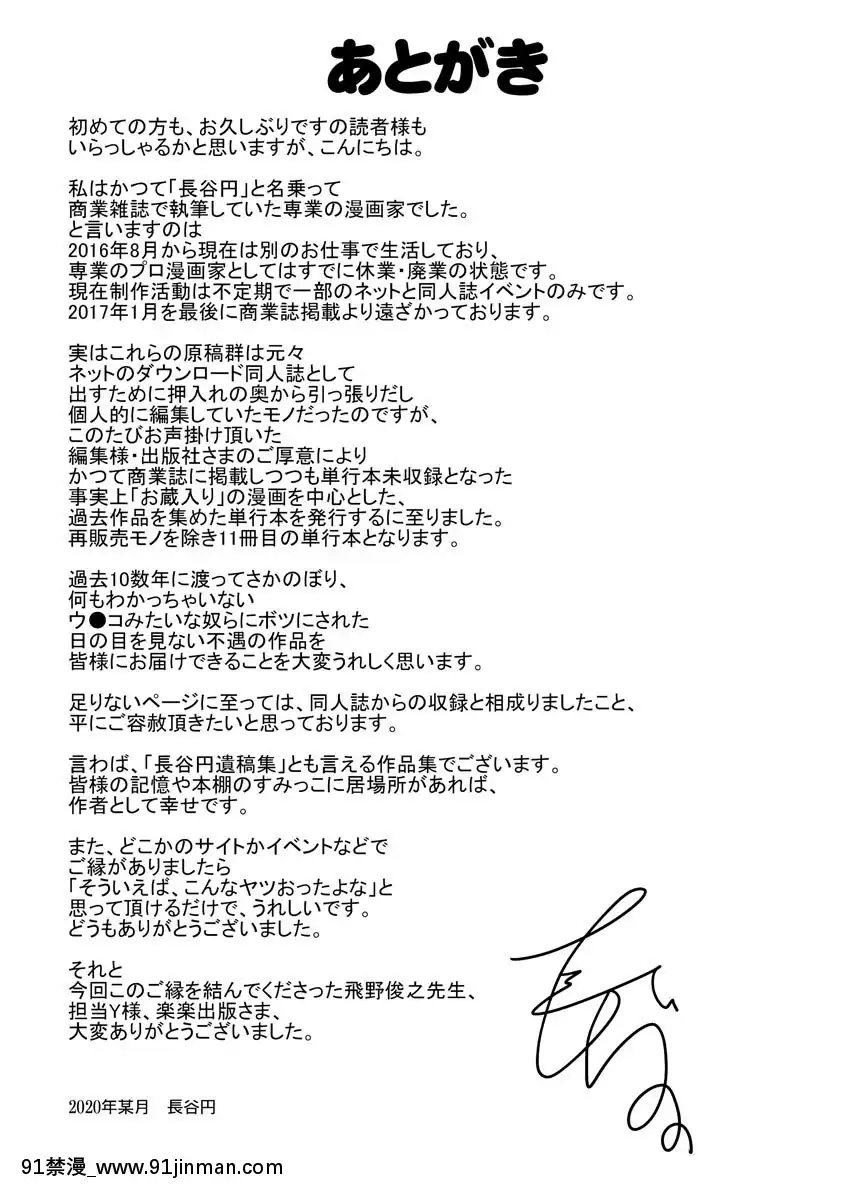 あとがき
初めての方も、お久しぶりですの読者様も
いらっしゃるかと思いますが、こんにちは。
私はかつて「長谷円」と名乗って
商業雑誌で執筆していた専業の漫画家でした。
と言いますのは
2016年8月から現在は別のお仕事で生活しており、
専業のプロ漫画家としてはすでに休業・廃業の状態です。
現在制作活動は不定期で一部のネットと同人誌イベントのみです。
2017年1月を最後に商業誌掲載より遠ざかっております。
実はこれらの原稿群は元々
ネットのダウンロード同人誌として
出すために押入れの奥から引っ張りだし
個人的に編集していたモノだったのですが、
このたびお声掛け頂いた
編集様・出版社さまのご厚意により
かつて商業誌に掲載しつつも単行本未収録となった
事実上「お蔵入り」の漫画を中心とした、
過去作品を集めた単行本を発行するに至りました。
再販売モノを除き11冊目の単行本となります。
過去10数年に渡ってさかのぼり、
何もわかっちゃいない
ウ●コみたいな奴らにボツにされた
日の目を見ない不遇の作品を
皆様にお届けできることを大変うれしく思います。
足りないページに至っては、同人誌からの収録と相成りましたこと、
平にご容赦頂きたいと思っております。
言わば、「長谷円遺稿集」とも言える作品集でございます。
皆様の記憶や本棚のすみっこに居場所があれば、
作者として幸せです。
また、どこかのサイトかイベントなどで
ご縁がありましたら
「そういえば、こんなヤツおったよな」と
思って頂けるだけで、うれしいです。
どうもありがとうございました。
それと
今回このご縁を結んでくださった飛野俊之先生、
担当Y様、楽楽出版さま、
大変ありがとうございました。
2020年某月　長谷円
91禁漫_www.91jinman.com